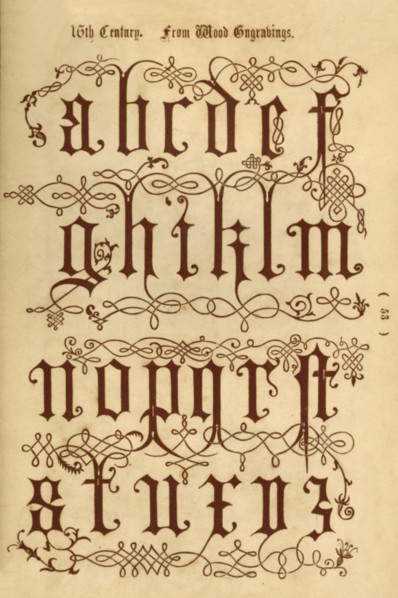 16th Century. From Wood Engravings.
a b c d e f
g h i k l m
( 53 )
n o p q r ſt
s t u x v z